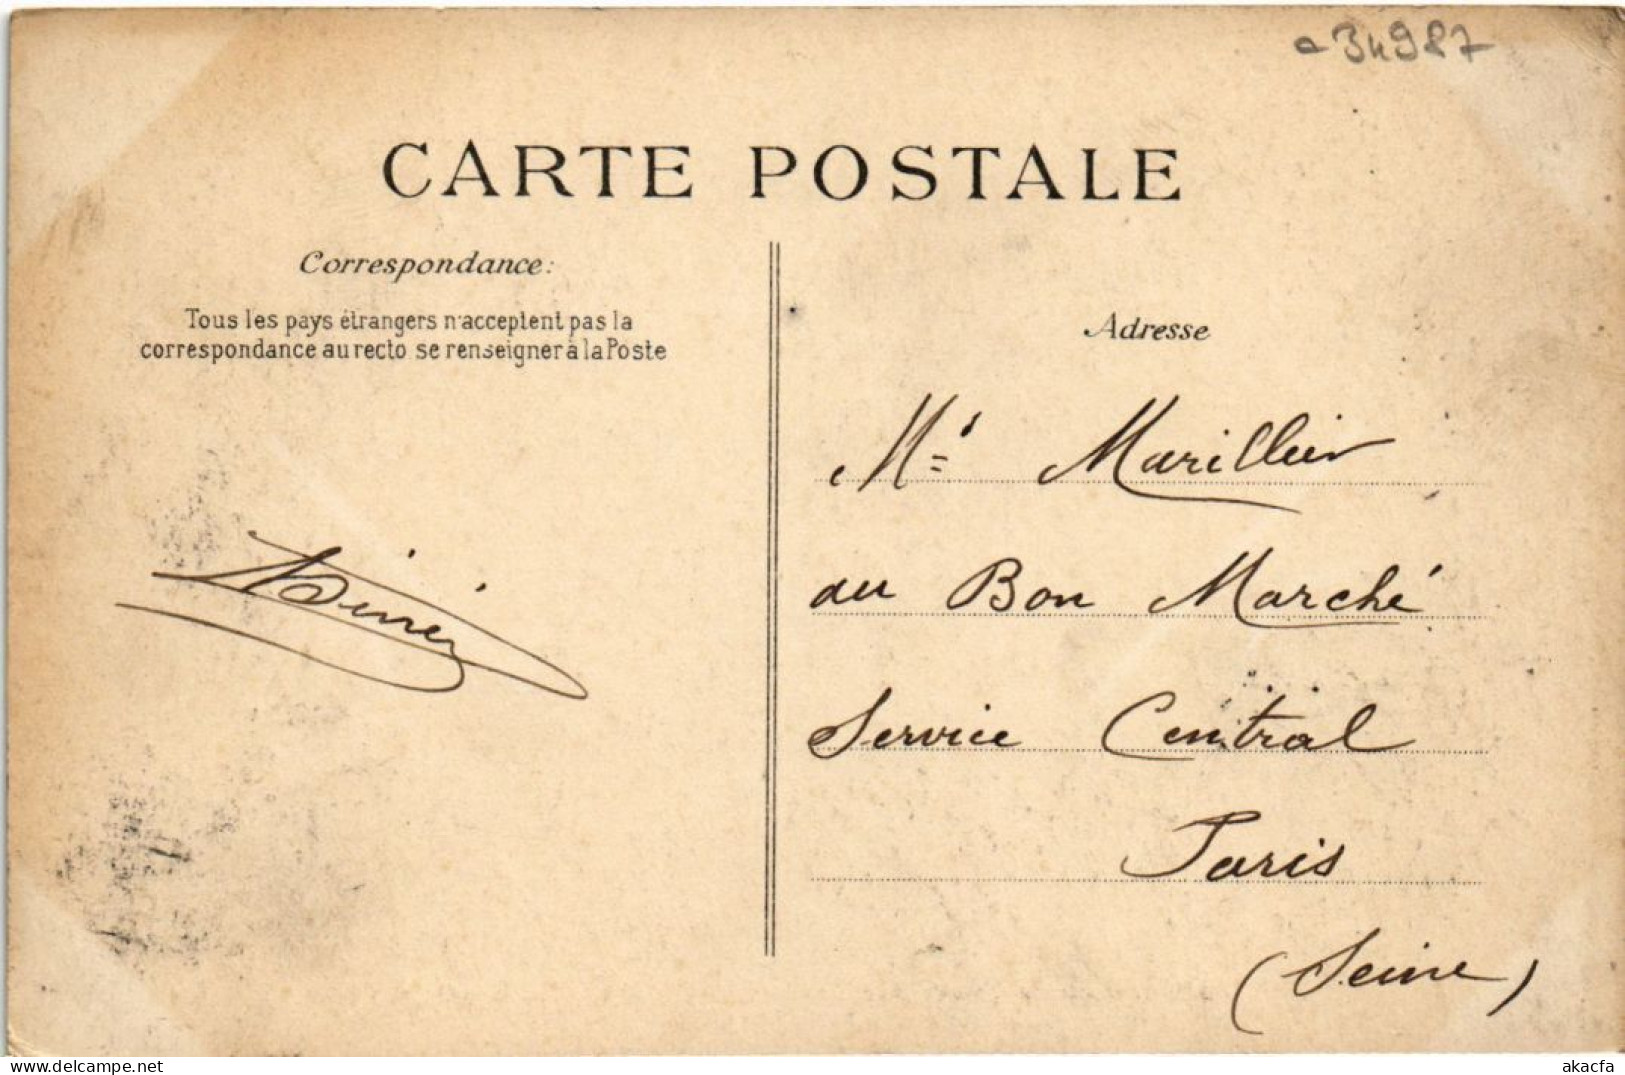 a 34987
CARTE POSTALE
Correspondance:
Tous les pays étrangers n'acceptent pas la
correspondance au recto se renseigner à la Poste
Adresse
Mr Marillier
au Bon Marché
Service Central
Paris
(Seine)
www.delcampe.net
akacfa